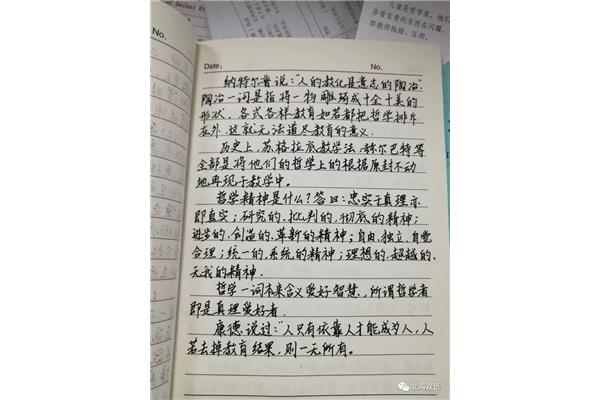 of Beihai Bi
儿童是哲学家,他们
异常宝贵的东西在闪耀,
即教师践踏、压抑。
No.
Date:
No.
纳特尔普说:"人的教化是意志的陶冶",
陶冶一词是指将一物雕琢成十全十美的
形状,各式各样教育如若都把哲学排斥
在外,这就无法道尽教育的意义.
历史上,苏格拉底教学法,赫尔巴特等
全部是将他们的哲学上的根据原封不动
地再现于教学中。
哲学精神是什么?答曰:忠实于真理亦
即真实;研究的,批判的,彻底的精神;
进步的,创造的,革新的精神;自由,独立,自觉
合理;统一的,系统的精神;理想的,超越的、
无我的精神.
哲学一词本来含义爱好智慧,所谓哲学者
即是真理爱好者.
康德说过:"人只有依靠人才能成为人,人
若去掉教育结果,则一无所有。
北海双语